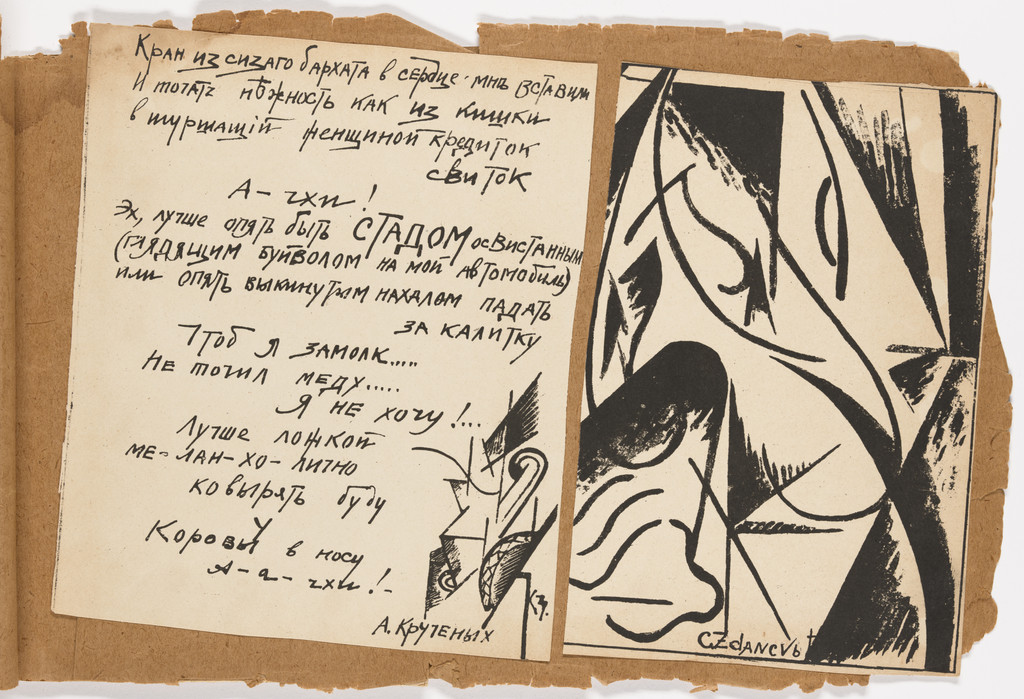 Кран из сизаго бархата в сердце мнѣ вставили
И точатъ нѣжность как из кишки
в шуршащій женщиной кредиток
свиток
А – чхи!
Эх, лучше опять быть СТАДОМ освистанным
(глядящим буйволом на мой автомобиль)
или опять выкинутым нахалом падать
за калитку
Чтоб я замолк.....
Не точил меду.....
Я не хочу!...
Лучше ложкой
ме-лан-хо-лично
ковырять буду
Коровы У в носу
А-а-чхи!-
КЗ.
А. Крученых
CZdANEVb